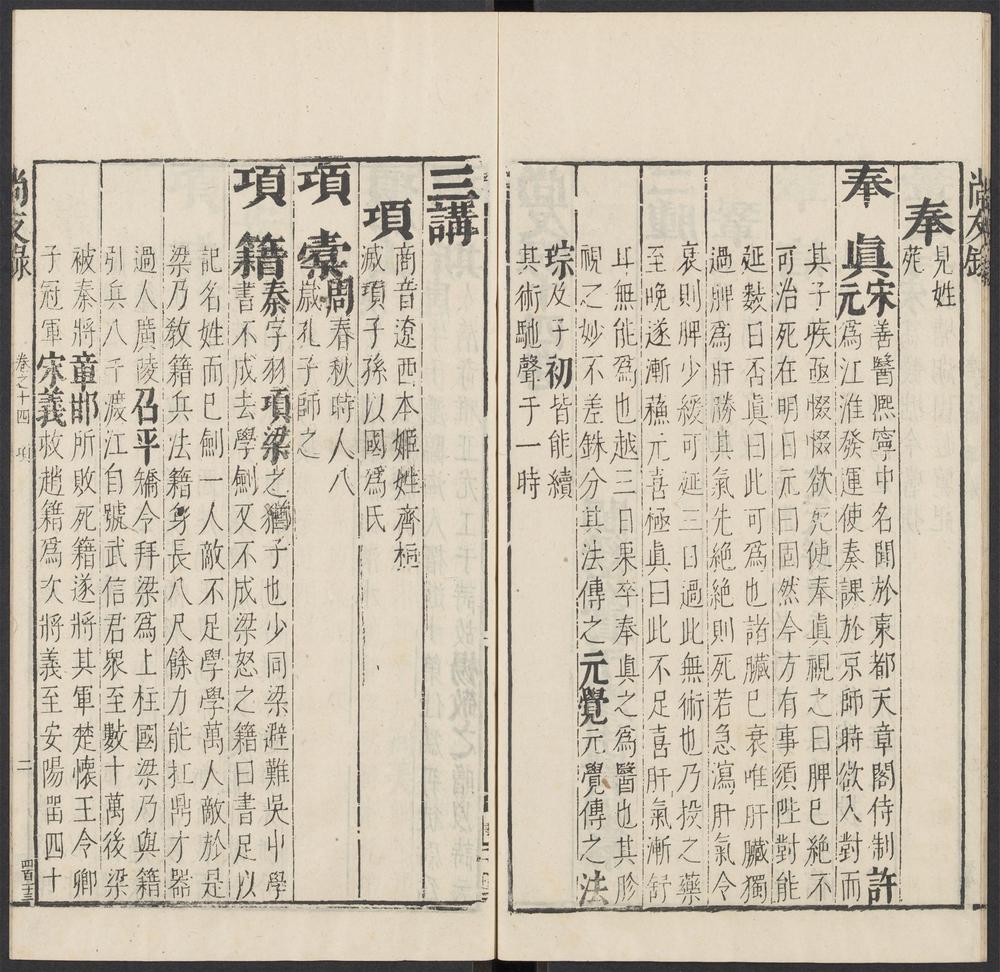 尚友錄
奉
見姓
苑
奉眞宋善醫熈寧中名聞於東都天章閣侍制許
元爲江淮發運使奏課於京師時欲入對而
其子疾亟惙惙欲死使奉眞視之曰脾巳絶不
可治死在明日元曰固然今方有事須陛對能
延數日否眞曰此可爲也諸臟巳衰唯肝臟獨
過脾爲肝勝其氣先絶絶則死若急瀉肝氣令
衰則脾少緩可延三日過此無術也乃投之藥
至晚遂漸蘓元喜極眞曰此不足喜肝氣漸舒
耳無能爲也越三日果卒奉眞之爲醫也其胗
視之妙不差銖分其法傳之元覺元覺傳之法
琮及子初皆能續
其術馳聲于一時
三講
項
商音遼西本姬姓齊桓
滅項子孫以國爲氏
項橐周春秋時人八
歲孔子師之
項籍秦字羽項梁之猶子也少同梁避難吳中學
書不成去學劍又不成梁怒之籍曰書足以
記名姓而巳劍一人敵不足學學萬人敵於是
梁乃敎籍兵法籍身長八尺餘力能扛鼎才器
過人廣陵召平矯令拜梁爲上柱國梁乃與籍
引兵八千渡江自號武信君衆至數十萬後梁
被秦將章邯所敗死籍遂將其軍楚懷王令卿
子冠軍宋義救趙籍爲次將義至安陽畱四十
尚友錄
卷之十四 項
二